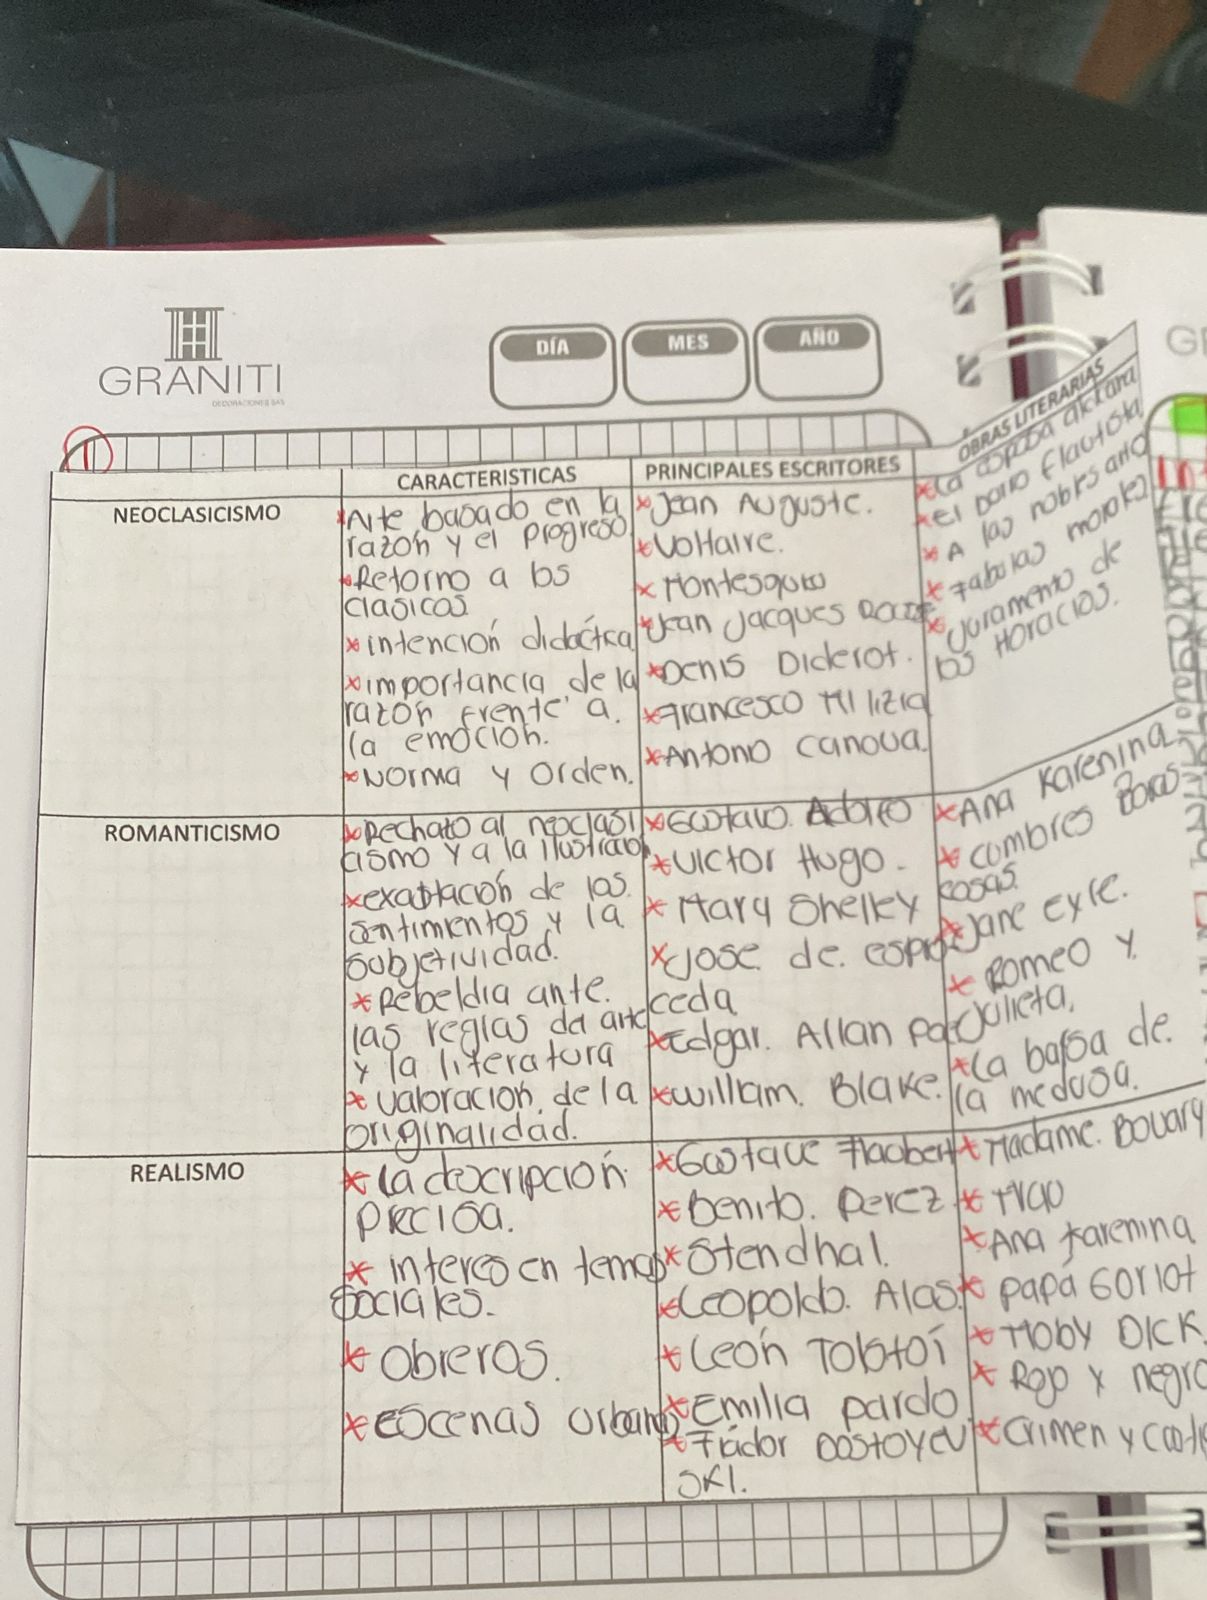 GRANITI
DECORACIONES SAS
DÍA
MES
AÑO
1
CARACTERISTICAS
PRINCIPALES ESCRITORES
OBRAS LITERARIAS
NEOCLASICISMO
*Arte basado en la
razón y el progreso
*Retorno a los
clasicos
*intención didáctica
*importancia de la
razón frente a.
la emoción.
*Norma y Orden.
*Jean Auguste.
*Voltaire.
*Montesquiu
*Jean Jacques
*Denis Diderot.
*Francesco Milizia
*Antono Canova.
*La
*el flautista
*A las nobles
*Fabulas morales
*Juramento de
los Horacios.
ROMANTICISMO
*Rechazo al neoclasi
cismo y a la
*exaltación de los
sentimientos y la
subjetividad.
*Rebeldia ante.
las reglas del arte
y la literatura
*valoracion de la
originalidad.
*Gustavo Adolfo
*Victor Hugo.
*Mary Shelley
*Jose de. espro
ceda
*Edgar. Allan Poe
*William. Blake.
*Ana Karenina
*cumbres Boras
cosas.
*Jane eyre.
*Romeo y
Julieta.
*La balsa de.
la medusa.
REALISMO
*La descripción
precisa.
*interes en temas
sociales.
*Obreros.
*escenas urbanas
*Gustave Flaubert
*Benito. Perez
*Stendhal.
*Leopoldo. Alas
*León Tolstoi
*Emilia pardo
*Fiador Dostoyev
ski.
*Madame. Bovary
*Ana Karenina
*papá Goriot
*Moby Dick
*Rojo y negro
*Crimen y